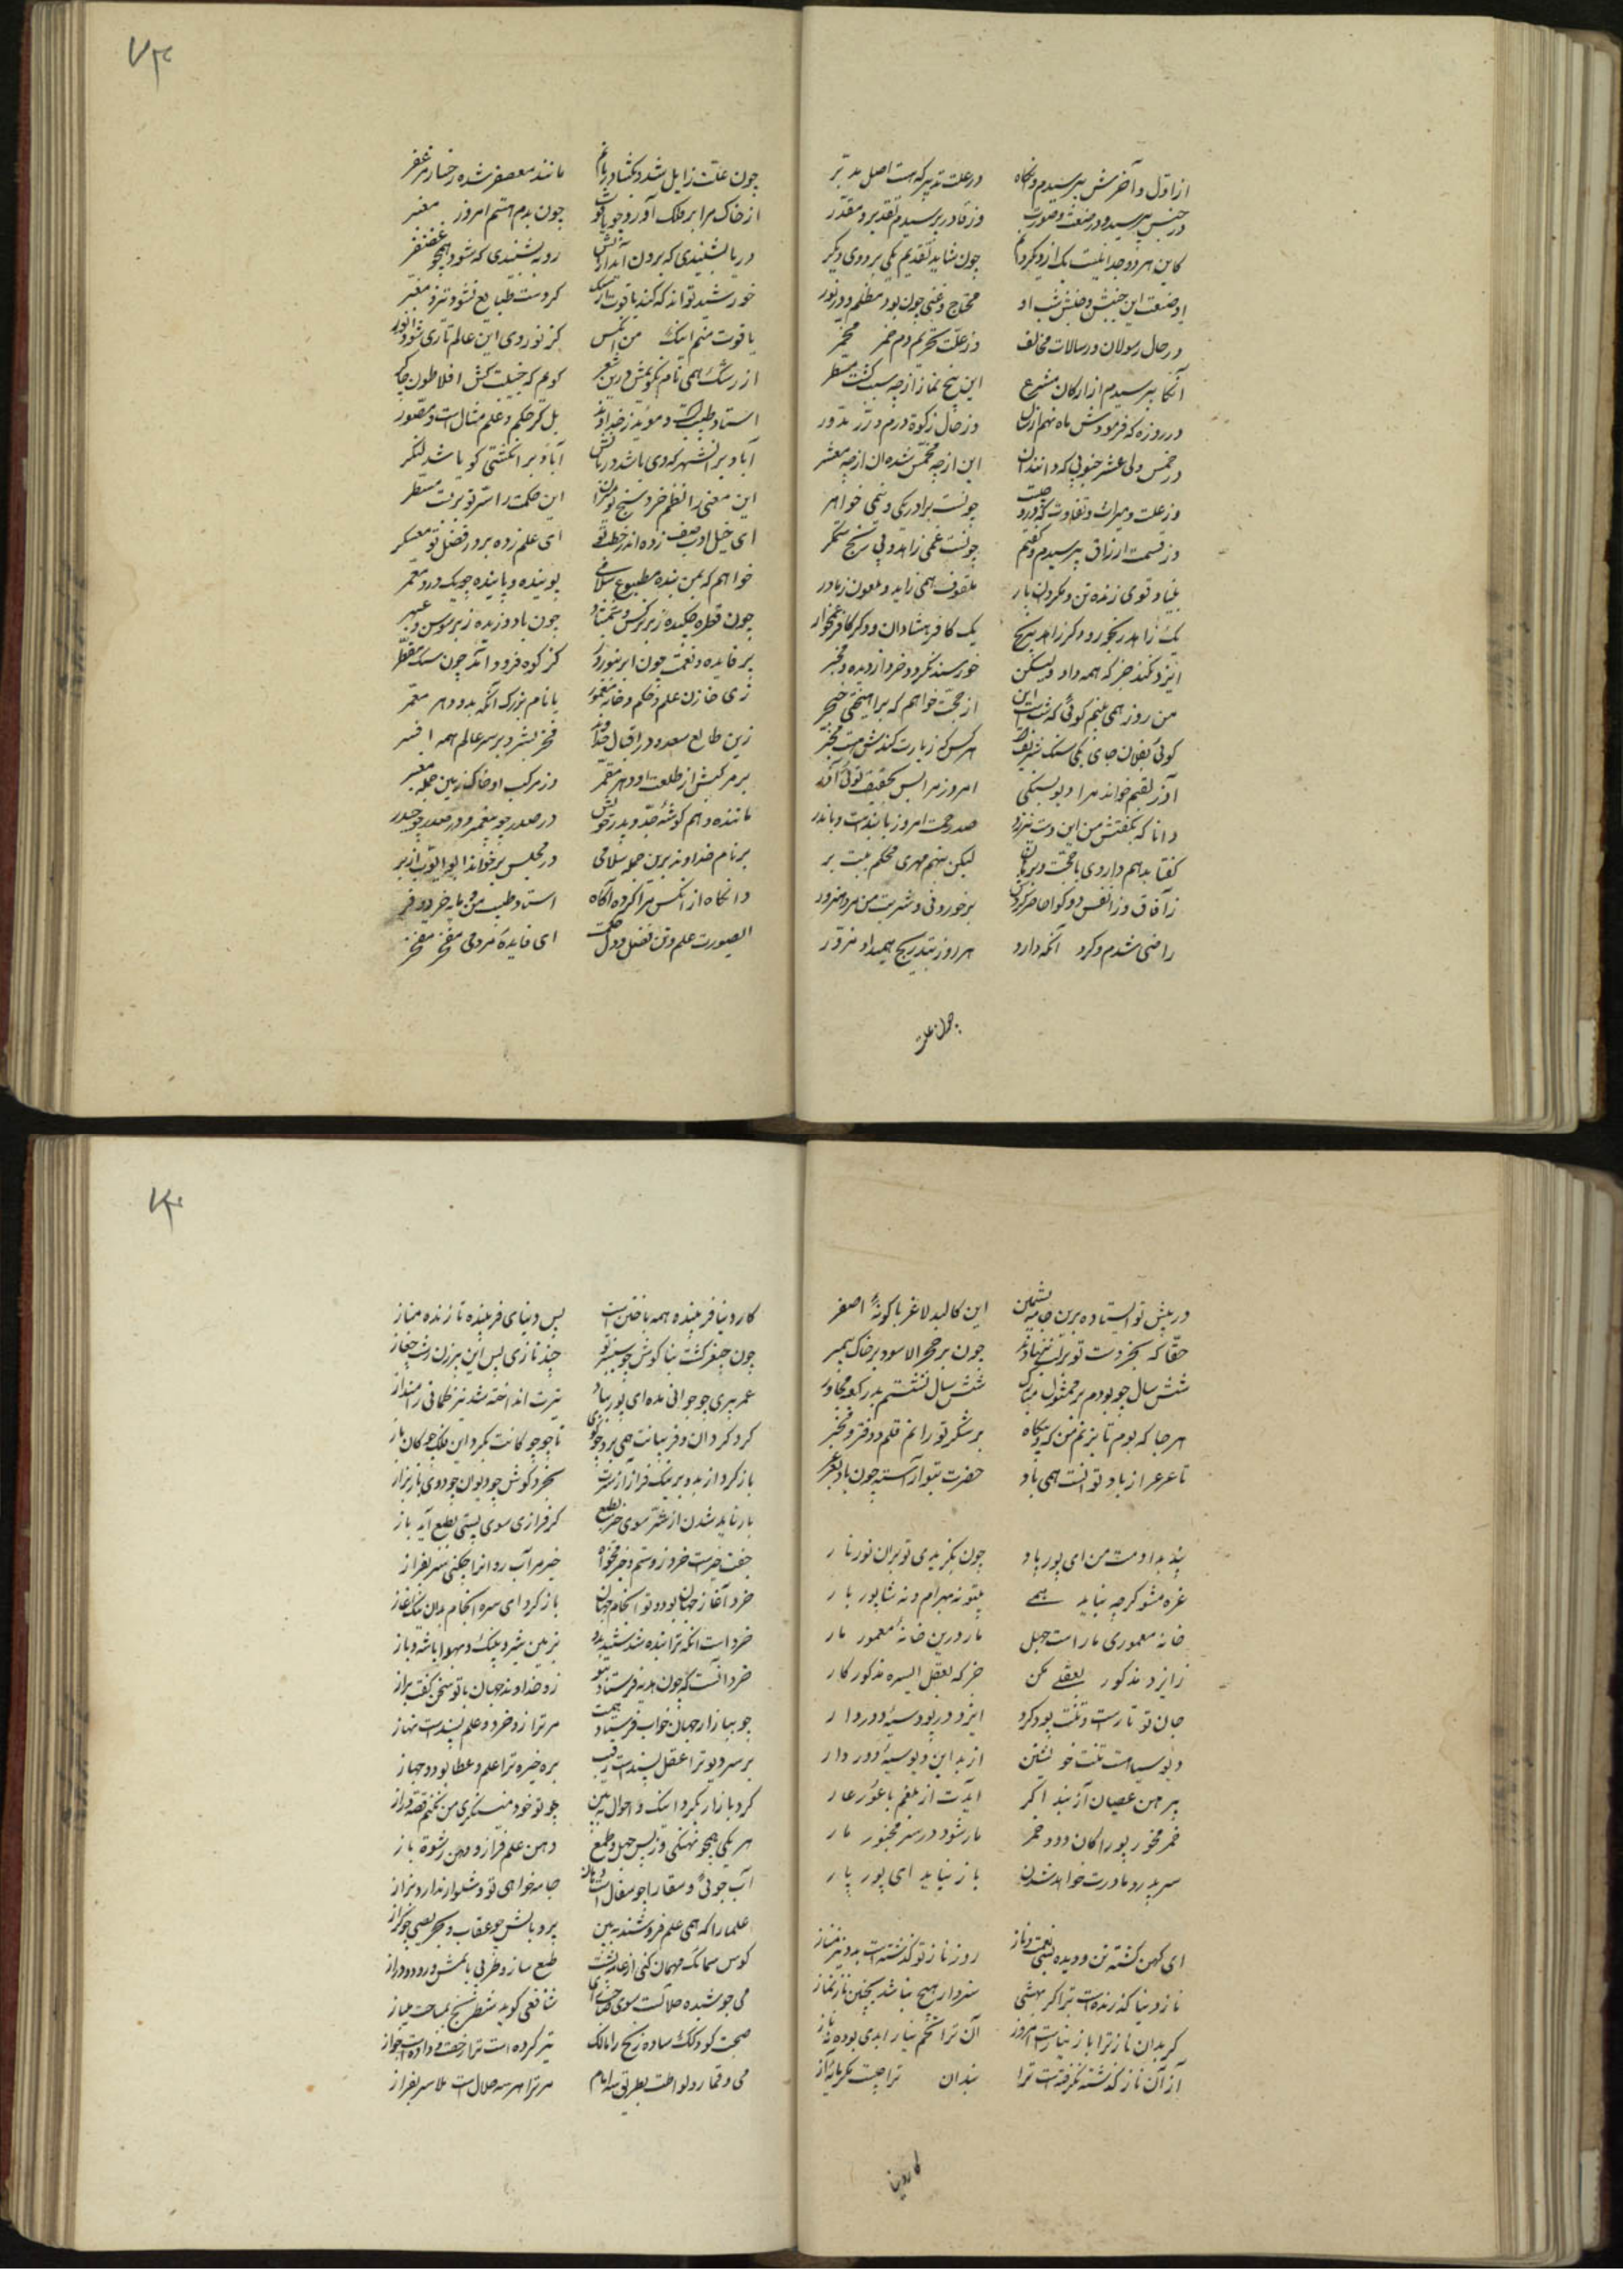 از اول و آخرش بپرسیدم وانکاه در علت تدبیر که هست اصل مدبر
در جنس بپرسیدم و در صنعت و صورت وز قادر پرسیدم تقدیر و مقدر
کاین هر دو جدا نیست یک از دیکر دایم چون شاید تقدیم یکی بر دوی دیکر
او صنعت این جنبش و جنبش محتاج و غنی چون بود و مظلم و انور
در حال رسولان و رسالات مخالف وز علت تحریم دم و خمر مخمر
آنکا بپرسیدم از ارکان شریعت این پنج نماز از چه سبب کشت مسطر
در روزه که فرمودش ماه نهم از سال وز حال زکوة درم و زر مدور
در خمس ولی عشر این از چه مخمس شد آن از چه معشر
وز علت میراث و تفاوت که درو چیست چونست برادر یکی و نیمی خواهر
وز قسمت ارزاق بپرسیدم و کفتم چونست غمی زاهد و بی رنج ستمکر
بینا و قوی زنده تن و مکفوف همی زاید و ملعون ز مادر
یک زاهد رنجور و دکر زاهد بی رنج یک کافر شادان و دکر کافر غمخوار
ایزد نکند جز که همه داد ولیکن خورسند نکردد خرد از دیده و مخبر
من روز همی بینم کوئی که شب است این از حجت خواهم که برآهیختی خنجر
کوئی بفلان جای یکی سنک شریف است هر کس که زیارت کندش هست محرر
آذر بقیم خواند مرا و تو بسنکی امروز مرا پس بحقیقت توئی آذر
دانا که بکفتمش من این دست بر صد رحمت امروز بر آن دست و بر آن بر
کفتا بدهم داروی با حجت و برهان لیکن بنهم مهری محکم بلبت بر
ز آفاق و ز انفس دو کوا حاضر کردش بر خوردنی و شربت من مرد هنرور
راضی شدم و کرد آنکه دارو هر روز بتدریج همیداد مزور
چون علت
۷۳
چون علت زایل شد و بکشاد زبانم مانند معصفر شده رخسار مزعفر
از خاک مرا بر فلک آورد چو یاقوت چون بدم هستم امروز معنبر
دریا بشنیدی که برون آید از آتش روبه بشنیدی که شود همچو غضنفر
خورشید تواند که کند یاقوت از سنک کز دست طبایع نشود نیز مغیر
یاقوت منم اینک من آنکس کز نور وی این عالم تاری شود انور
از رشک همی نام نکویمش درین شعر کویم که خلیلیست کش افلاطون چاکر
استاد طبیب است و مؤید ز خداوند بل کز حکم و علم مثال است و مصور
آباد بر آن شهر که وی باشد دربانش آباد بر آن کشتی کو باشد لنکر
این معنی را نظم خرد سنج تو میزان این حکمت را نثر تو برست مسطر
ای خیل ادب صف زده اندر خطب تو ای علم زده بر در فضل تو معسکر
خواهم که ز من بنده مطیع سلامی پوینده و پاینده چو یک ورد مقمر
چون قطره چکیده ز بر نرکس و شمشاد چون باد وزنده ز بر سوسن و عبهر
بر فایده و نعمت چون ابر بنوروز کز کوه فرود آید چون مشک مقطر
زی خازن علم و حکم و خانه معمور با نام بزرک آنکه بدو دهر معمر
زین طالع سعد و در اقبال خداوند فخر بشر و بر سر عالم همه افسر
بر مرکبش از طلعت او دهر مقمر وز مرکب او خاک زمین جمله معنبر
ماننده و هم کوشه جد و پدر خویش در صدر چو پیغمبر و در صدر چو حیدر
بر نام خداوند برین جمله سلامی در مجلس برخواند ابوایوب ازبر
وانکاه از آنکس مرا کرده آکاه استاد طب من و مایه خرد و فر
ای صورت علم و تن فضل و دل حکمت ای فایده مردمی مفخر مفخر
در پیش تو ایستاده برین جامه پشمین این کالبد لاغر با کونه اصفر
حقا که بجز دست تو بر لب ننهادم چون بر حجرالاسود و بر خاک پیمبر
شش سال چو بودم بر ممثول مبارک شش سال نشستم بدر کعبه مجاور
هر جا که بوم تا بزیم من که و بیکاه بر شکر تو رانم قلم و دفتر و محبر
تا عرعر از باد نوانست همی باد حضرت بتو آراسته چون باغ بعرعر
پند بدادمت من ای پور پار چون بکزیدی تو بر آن نور نار
غره مشو کر چه نیاید همی بیتو نه بهرام و نه شاپور بار
خانه معموری مار است جهل مار درین خانه معمور مار
ز ایزد مذکور بعقلی مکن جز که بعقل ای سره مذکور کار
جان تو تارست و تنت پود کرد ایزد در پود
دیو سیاه است تنت خویشتن از بد این دیو سیه دور دار
پیرهن عصیان آزیند اکر آیدت از بلعم باعور عار
خمر مخور پورا کان دود خمر مار شود در سر مخمور مار
سر بدر و مادرت خواهد شدن باز نیاید ای پور پار
ای کهن کشته تن و دیده بسی نعمت و ناز روز ناز تو کذشته است بدو نیز مناز
ناز دنیا کذرنده است ترا کر بهشی سزدار هیچ نباشد بچنین ناز نیاز
کر بدان ناز ترا باز نیاز است امروز آن ترا تخم نیاز ابدی بود نه ناز
از آن ناز کذشته نکرفتست ترا بند آن تراچیست بکر مایه آز
کار دنیا
۷۴
کار دنیا فریبنده همه باختن است پس دنیای فریبنده تازنده متاز
چون چغز کشت بناکوش چو سیسنبر تو چند نازی پس این پیرزن زشت چغاز
عمر پیری چو جوانی مده ای پور بباد تیرت انداخته شد نیز کمانی را مینداز
کرد کردان و فریبانت همی برد چو کوی تا چو چوکانت بکرد این فلک چوکان باز
باز کرد از بد و بر نیک فراز آر سرت بخرد کوش چو دیوان چو دوی باز براز
باز باید شدن از شر سوی خیر بطبع کر فرازی سوی پستی بطبع آید باز
جفت خیر است خرد زو ستم و خیر مخواه خیره مر آب روان را چکنی سر بفراز
خرد آغاز جهان بود و تو انجام جهان باز کرد ای سره انجام بدان نیک آغاز
خرد است آنکه ترا بنده شدستند بدو بزمین شیر و پلنک و بهوا باشه و باز
خرد آنست که چون هدیه فرستاد بتو زو خداوند جهان با تو سخن کفت براز
چو ببازار جهان خواب فرستاد همت مر ترا زو خرد و علم پسندست نهاز
بر سر دیو ترا عقل پسندست رقیب بره خیر ترا علم و عطا بود و جهاز
کرد بازار بکرد اینک و احوال ببین چو تو خود مینکری من نکنم قصه دراز
هر یکی همچو نهنکی وز بس جهل و طمع دهن علم فراز و دهن رشوه باز
آب جوئی و سقا را چو سفال است دهان جامه خواهی تو و شلوار ندارد بزاز
علما را که همی علم فروشند ببین پر و بالش چو عقاب و بحریصی چو کراز
کوس سمانک مهمان کنی از خانه زشت طبع ساز و طربی یابیش و رود نواز
می جوشیده حلالست سوی صاحب رای شافعی کوید شطرنج مباحست بباز
صحبت کودکک ساده زنخ را مالک نیز کرده است ترا رخصت و داده است جواز
می و قمار و لواطت بطریق سه امام مر ترا هر سه حلال است هلا سر بفراز